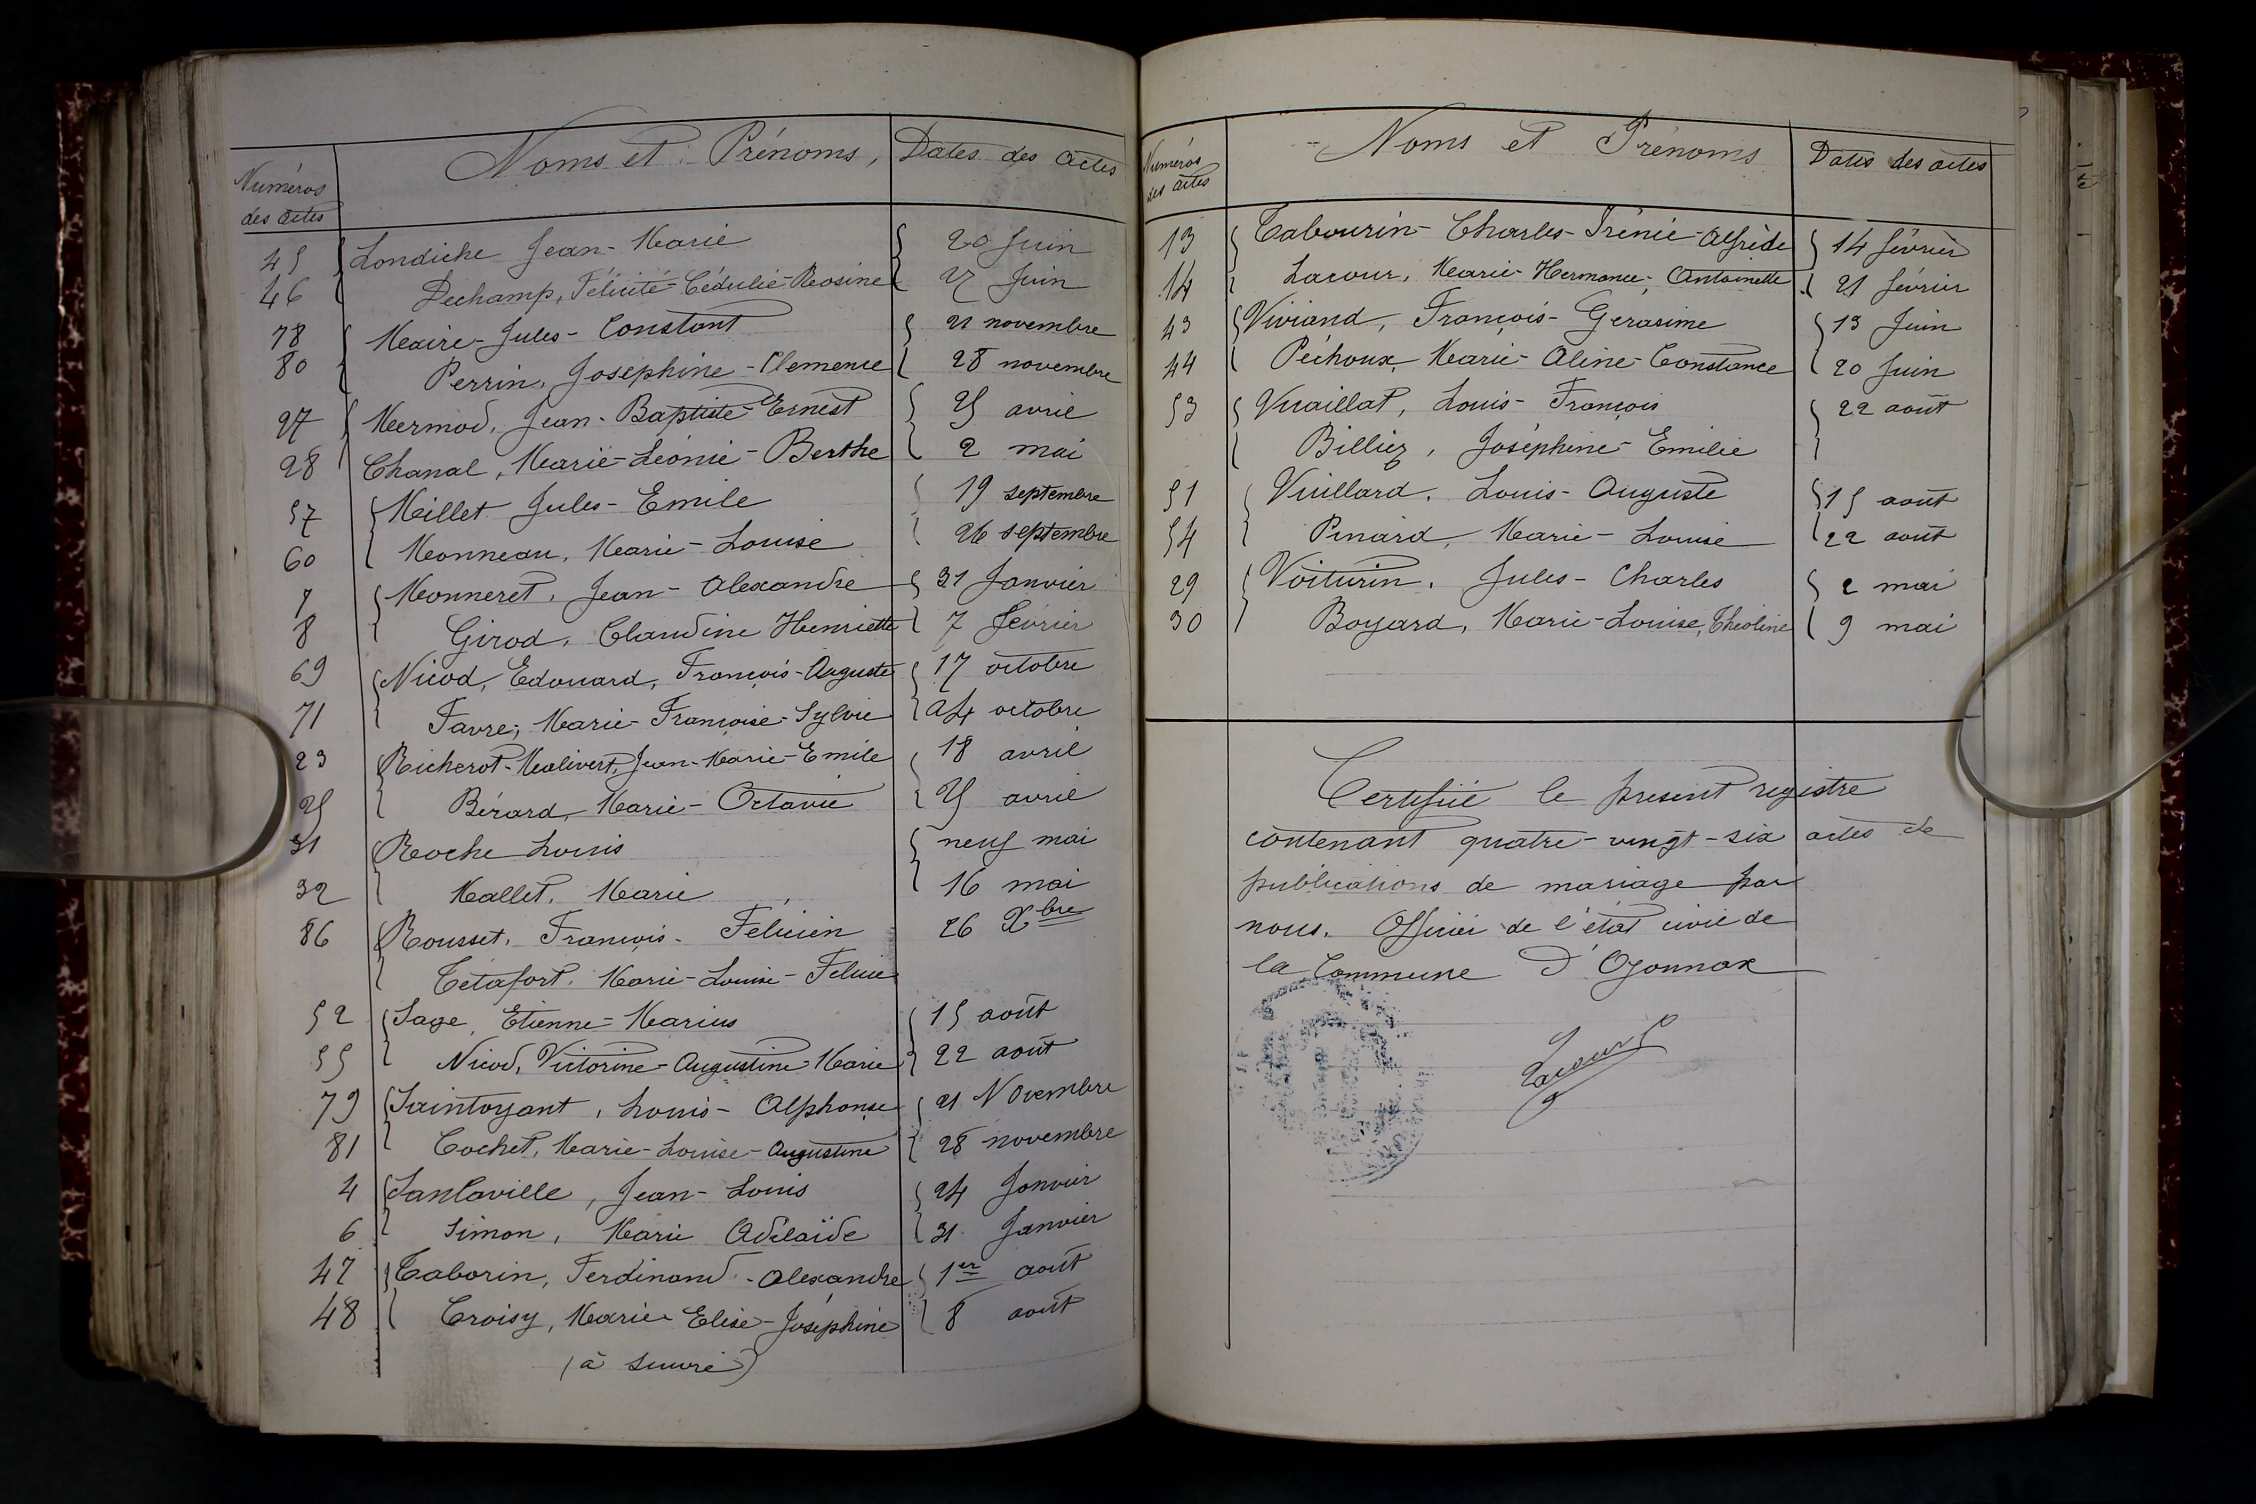 Numéros des actes Noms et Prénoms, Dates des actes
45 Londiche Jean-Marie 20 Juin
46 Dechamp, Félicité-Cédulie-Rosine 27 Juin
78 Maire-Jules-Constant 21 novembre
80 Perrin, Joséphine-Clemence 28 novembre
27 Mermod, Jean-Baptiste-Ernest 25 avril
28 Chanal, Marie-Léonie-Berthe 2 mai
57 Millet Jules-Emile 19 septembre
60 Monneau, Marie-Louise 26 septembre
7 Monneret, Jean-Alexandre 31 Janvier
8 Girod, Claudine Henriette 7 Février
69 Nicod, Edouard, François-Auguste 17 octobre
71 Favre, Marie-Françoise-Sylvie 24 octobre
23 Richerot-Malivert, Jean-Marie-Emile 18 avril
25 Bérard, Marie-Octavie 25 avril
31 Roche Louis neuf mai
32 Mallet, Marie 16 mai
86 Rousset, François-Félicien 26 Xbre
Tétafort, Marie-Louise-Félicie
52 Sage, Etienne-Marius 15 août
55 Nicod, Victorine-Augustine-Marie 22 août
79 Saintoyant, Louis-Alphonse 21 Novembre
81 Cochet, Marie-Louise-Augustine 28 novembre
4 Sanlaville, Jean-Louis 24 Janvier
6 Simon, Marie Adélaïde 31 Janvier
47 Taborin, Ferdinand-Alexandre 1er août
48 Croisy, Marie-Elise-Joséphine 8 août
(à suivre)
Numéros des actes Noms et Prénoms Dates des actes
13 Tabourin-Charles-Irénée-Alfrède 14 février
14 Lacour, Marie-Hermance, Antoinette 21 février
43 Viviand, François-Gerasime 13 Juin
44 Péchoux, Marie-Aline-Constance 20 Juin
53 Vuaillat, Louis-François 22 août
Billiez, Joséphine-Emilie
51 Vuillard, Louis-Auguste 15 août
54 Pinard, Marie-Louise 22 août
29 Voiturin, Jules-Charles 2 mai
30 Boyard, Marie-Louise, Théoline 9 mai
Certifié le présent registre
contenant quatre-vingt-six actes de
publications de mariage par
nous, Officier de l'état civil de
la Commune d'Oyonnax